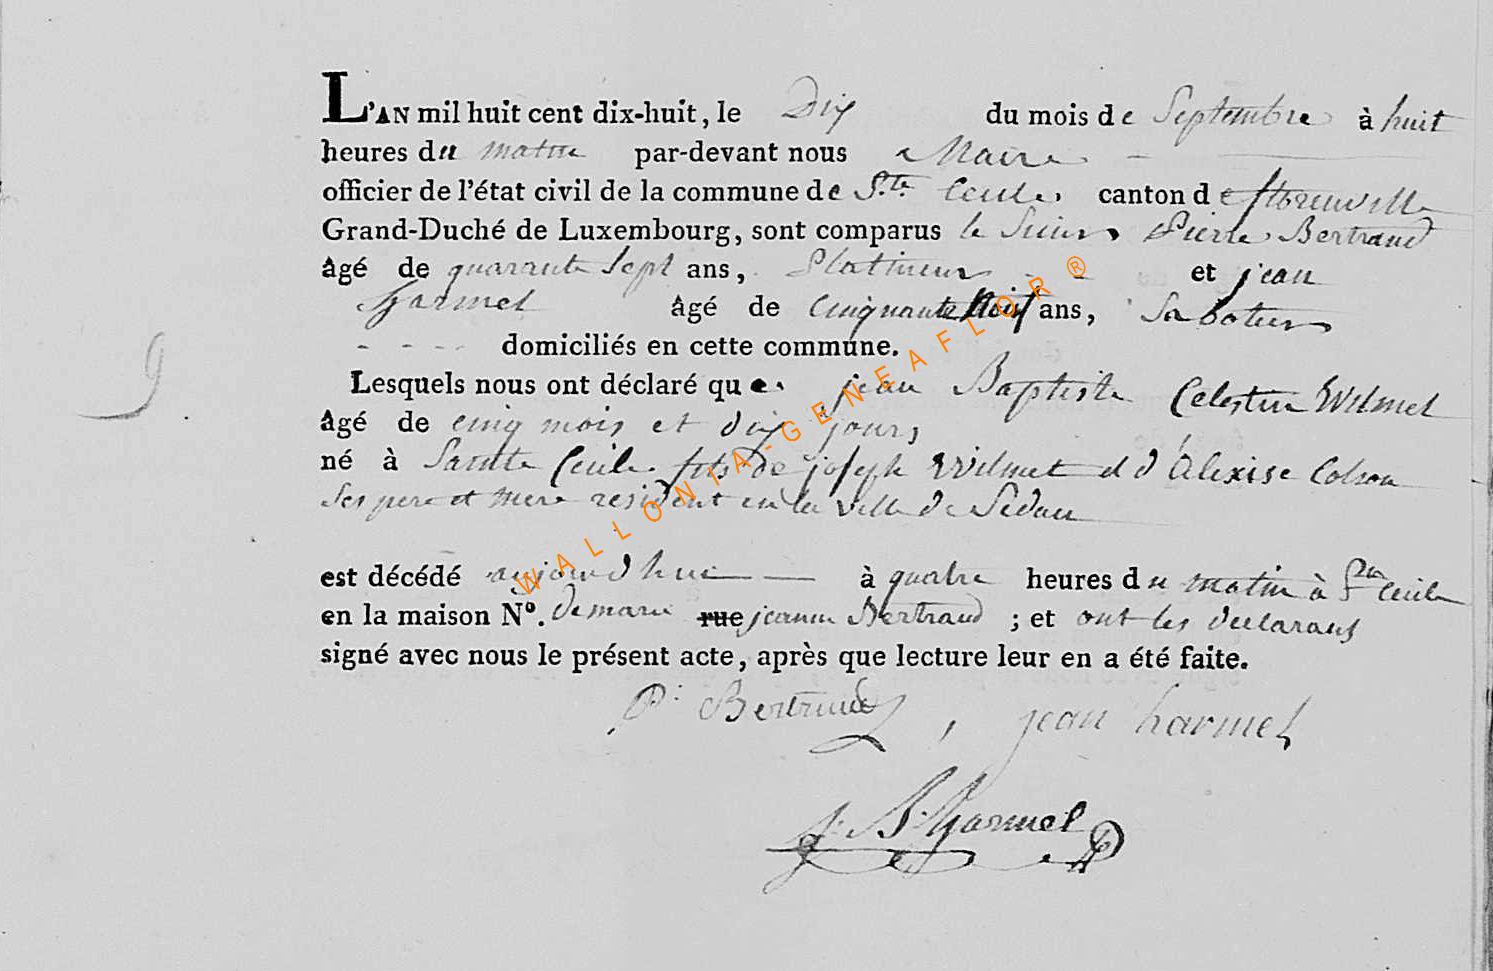 L'AN mil huit cent dix-huit, le Dix du mois de Septembre à huit
heures du matin par-devant nous Maire
officier de l'état civil de la commune de Ste Cecile, canton de florenville
Grand-Duché de Luxembourg, sont comparus le Sieur Pierre Bertrand
âgé de quarante Sept ans, Platineur et jean
harmel âgé de Cinquante ans, Sabotier
domiciliés en cette commune.
9
Lesquels nous ont déclaré que jean Baptiste Celestin Wilmet
âgé de cinq mois et dix jours
né à Sainte Cecile fils de joseph Wilmet et d'Alexise Colson
Ses pere et mere resident en la ville de Sedan
est décédé aujourdhui à quatre heures du matin à Ste Cecile
en la maison No. De marie rue jeanne Bertrand ; et ont les declarans
signé avec nous le présent acte, après que lecture leur en a été faite.
P. Bertrand, jean harmel
j. B. harmel
WALLONIA-GENEAFLOR®